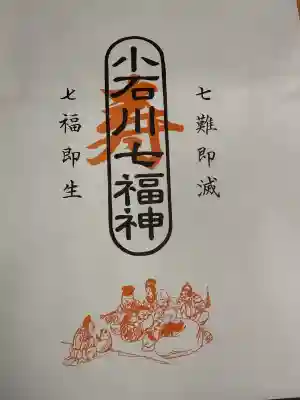 七難即滅
小石川七福神
七福即生
奉